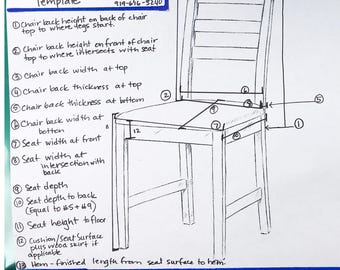 Template
919-696-5240
① Chair back height on back of chair
top to where legs start.
② Chair back height on front of chair
top to where intersects with seat
③ Chair back width at top
④ Chair back thickness at top
⑤ Chair back thickness at bottom
⑥ Chair back width at
bottom
⑦ Seat width at front
⑧ Seat width at
intersection with
back
⑨ Seat depth
⑩ Seat depth to back
(Equal to #5+#9)
⑪ Seat height to floor
⑫ Cushion/Seat Surface
plus wood skirt if
applicable
⑬ Hem - finished length from seat surface to hem
②
⑥
⑤
①
⑦
12